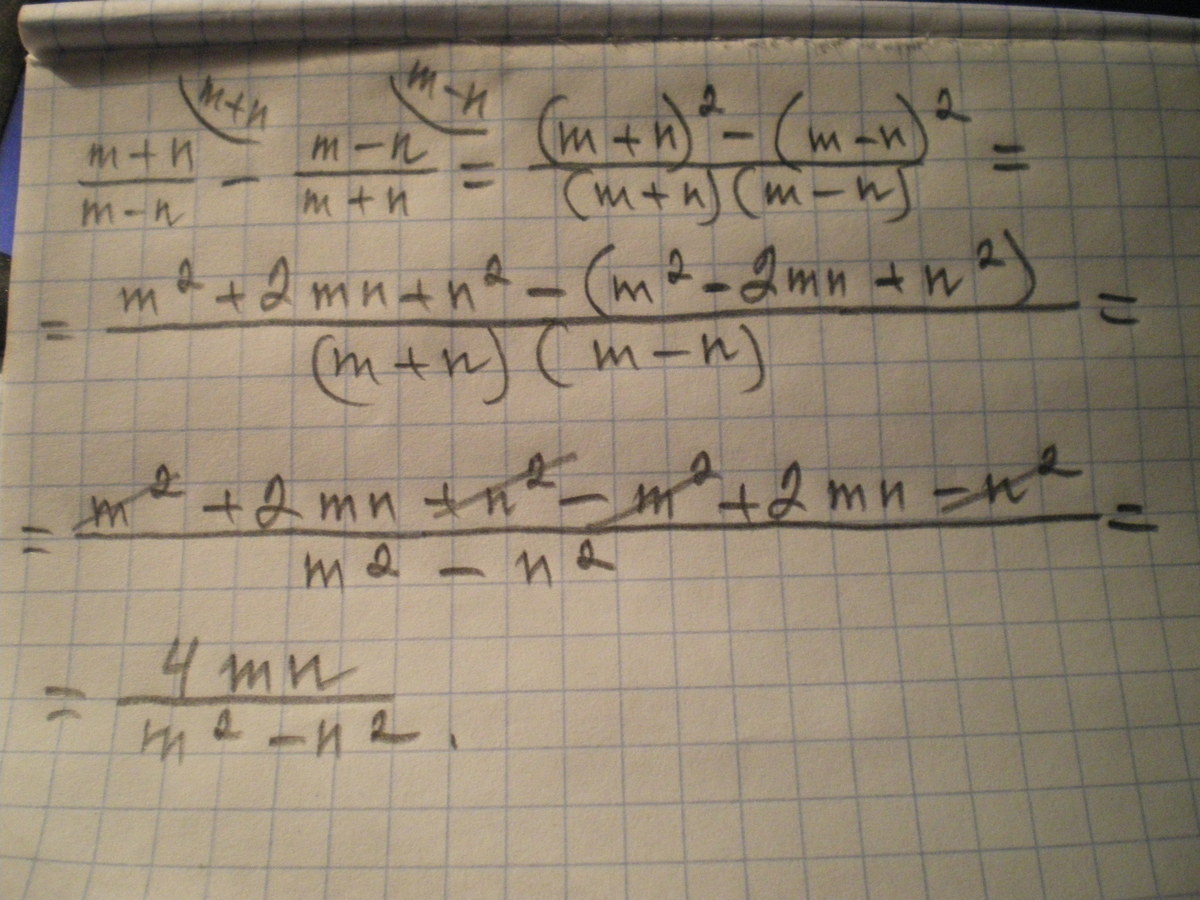 (m+n)/(m-n) \m+n - (m-n)/(m+n) \m-n = ((m+n)² - (m-n)²)/((m+n)(m-n)) =
= (m² + 2mn + n² - (m² - 2mn + n²))/((m+n)(m-n)) =
= (m² + 2mn + n² - m² + 2mn - n²)/(m² - n²) =
= 4mn/(m² - n²).